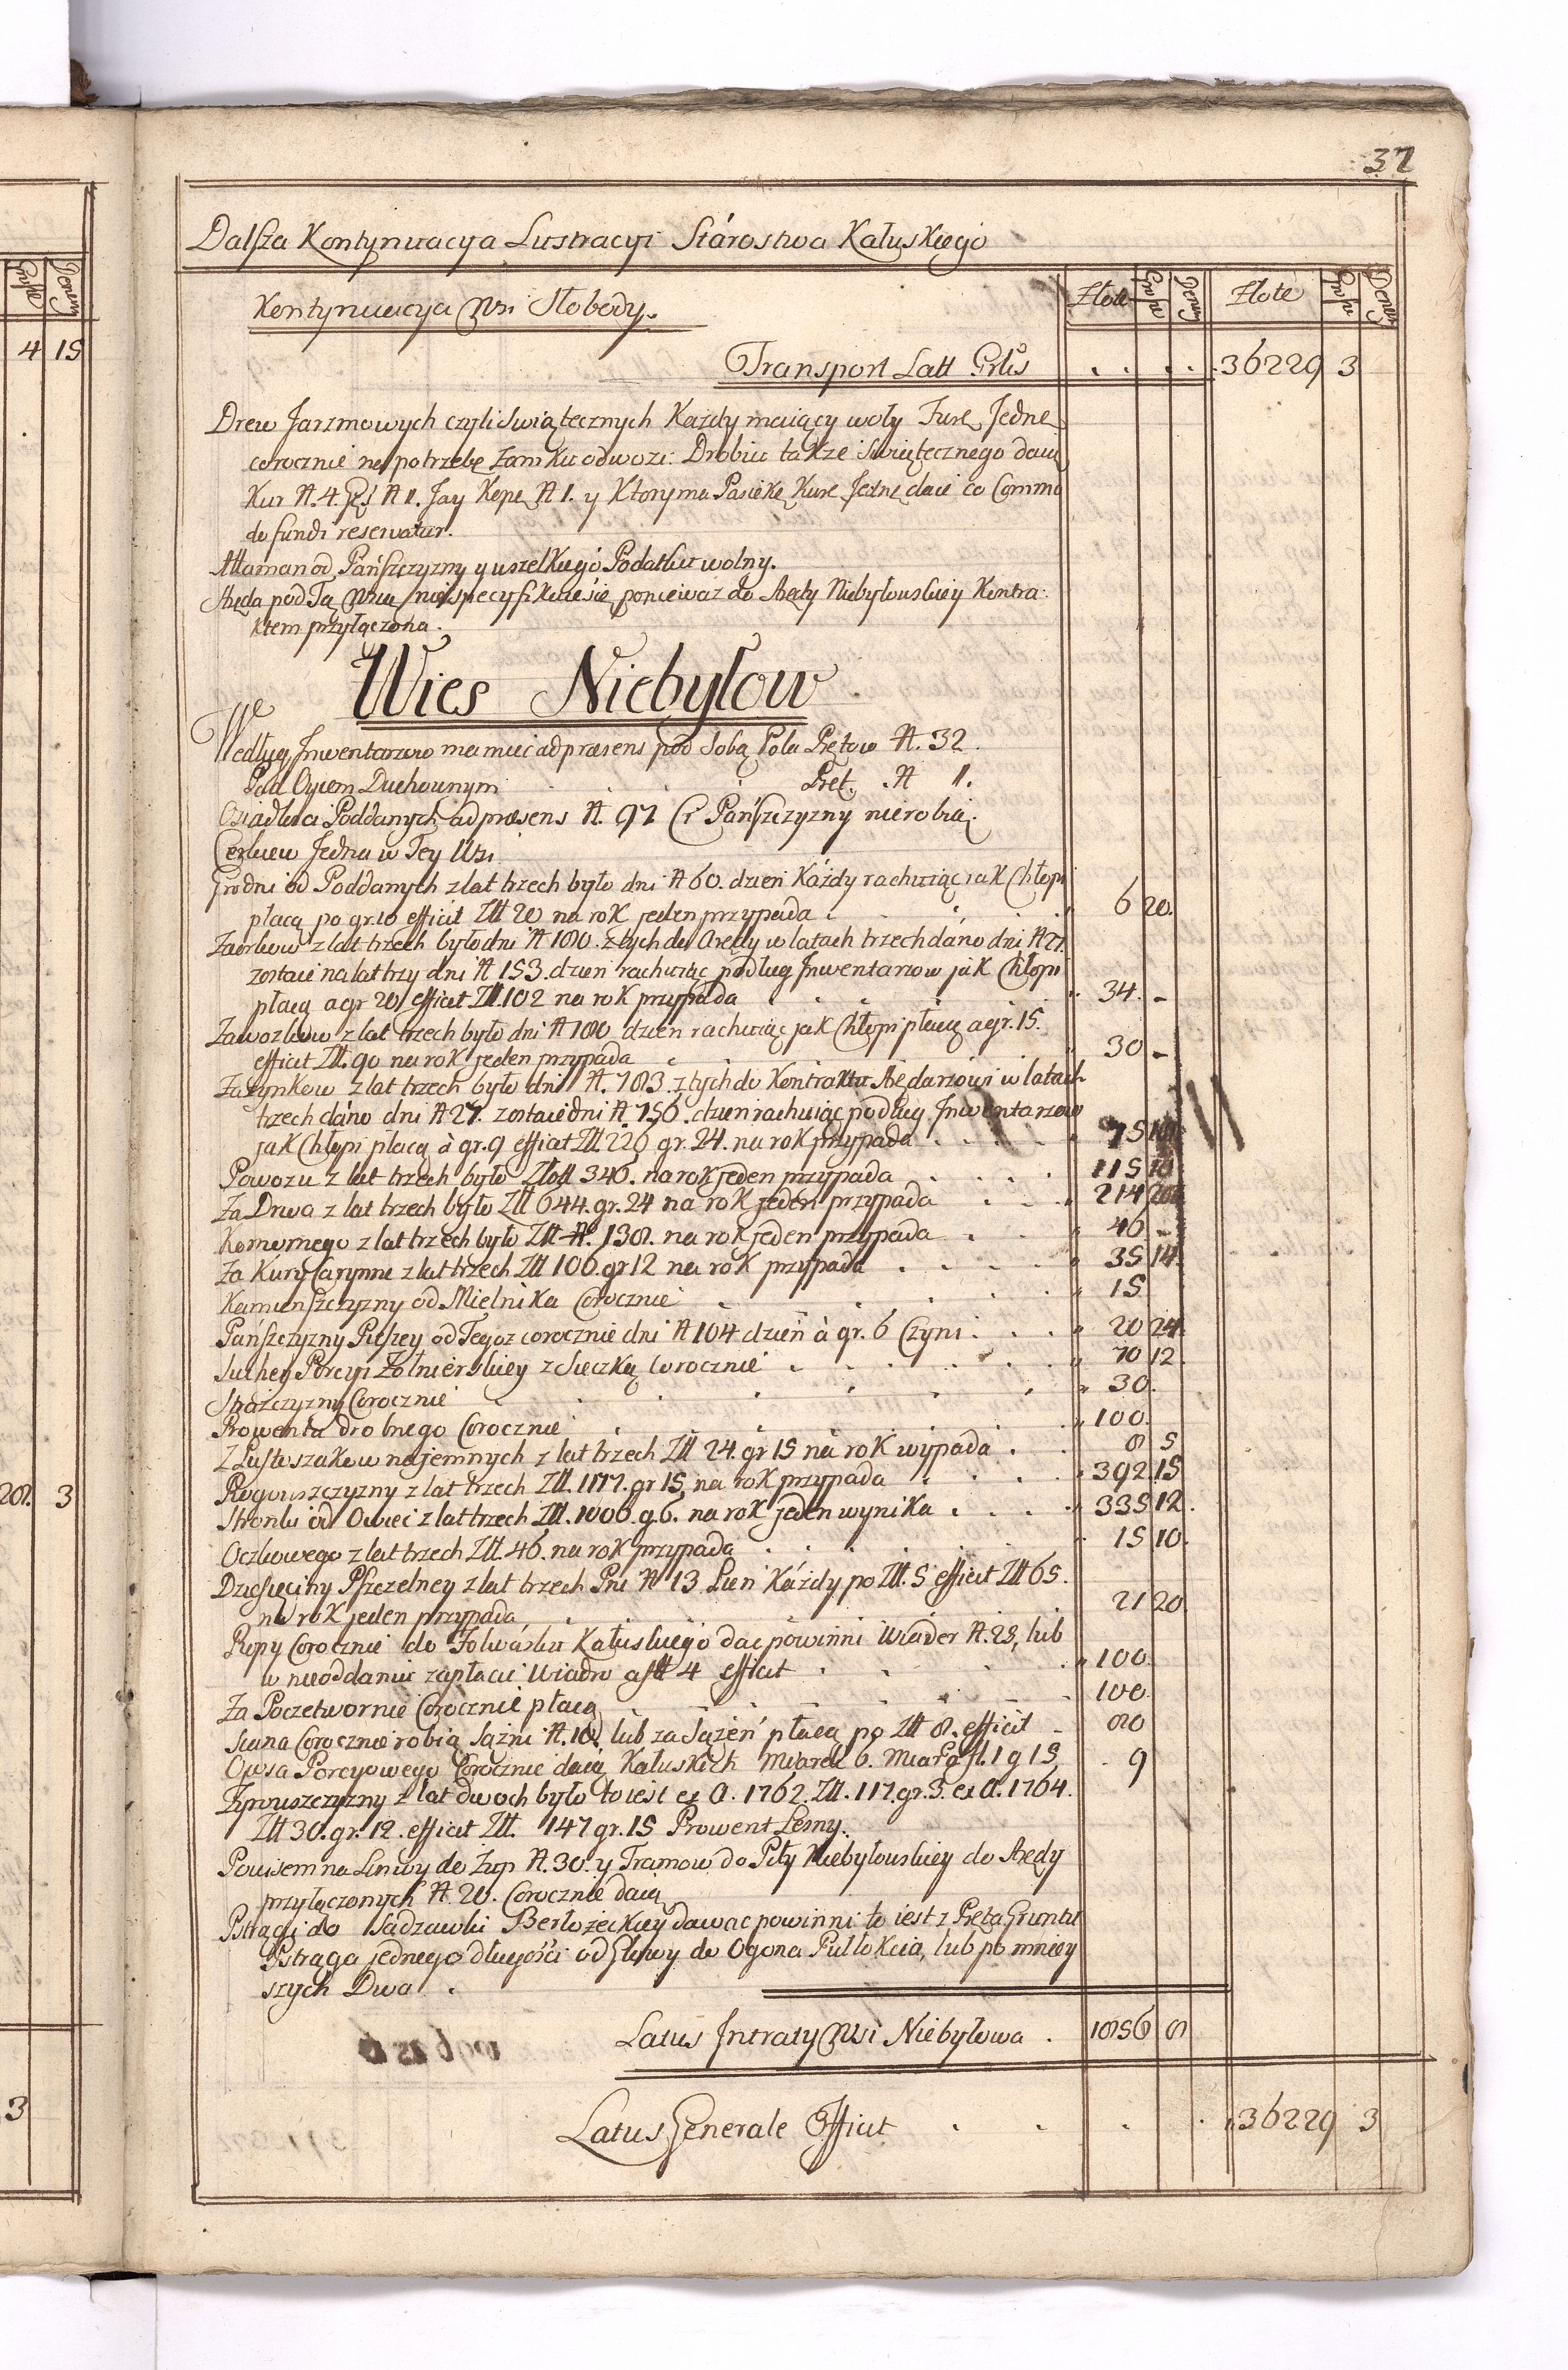 37
Dalsza Kontynuacya Lustracyi Stárostwa Kałuskiego
Złote Grosze Denar Złote Grosze Denar
Kontynuacya Wsi Słobody.
Transport Latt Grlis . . . . 36229 3
Drew Jarzmowych czyli Swiątecznych Kazdy maiący woły Furę Jedne
corocznie na potrzebę Zamku odwozi. Drobiu takze Swiątecznego daią
Kur N. 4. Gęś N 1. Jay Kopę N 1. y Ktory ma Pasiekę Kurę Jednę daie co Commo
do fundi reservatur.
Attaman od Pańszczyzny y wszelkiego Podatku wolny.
Aręda pod Tą Wsią nie specyfikuie się ponieważ do Arędy Niebyłowskiey Kontra:
ktem przyłączona.
Wies Niebyłow
Według Inwentarzow ma mieć ad præsens pod Sobą Pola Prętow N. 32.
Pod Oycem Duchownym . . . Pręt. N 1.
Osiadłosci Poddanych ad præsens N. 97 Ci Pańszczyzny nierobią.
Cerkiew Jedna w Tey Wsi
Grodni od Poddanych z lat trzech było dni N 60. dzień Káżdy rachuiąc iak Chłopi
płacą po gr. 10 efficit Złł 20 na rok jeden przypada . . . 6 20.
Zaorkow z lat trzech było dni N 180. z tych do Arędy w latach trzech dáno dni N 27.
zostaie na lat trzy dni N 153. dzień rachuiąc podług Inwentarzow jak Chłopi
płacą a gr 20 efficit Złł. 102 na rok przypada . . . 34. -
Zawozkow z lat trzech było dni N 180 dzień rachuiąc jak Chłopi płacą a gr. 15.
efficit Złł. 90 na rok jeden przypada . . . 30 -
Zażynkow z lat trzech było dni N. 783. z tych do Kontraktu Arędarzowi w latach
trzech dáno dni N 27. zostaie dni N. 756. dzień rachuiąc podług Inwentarzow
jak Chłopi płacą à gr. 9 efficit Złł. 226 gr. 24. na rok przypada . . . 75 18
Powozu z lat trzech było Złott 346. na rok jeden przypada . . . 115 10
Za Drwa z lat trzech było Złł 644. gr. 24 na rok jeden przypada . . . 214 28
Komornego z lat trzech było Złł N. 138. na rok jeden przypada . . . 46 -
Za Kury Carynne z lat trzech Złł 106. gr 12 na rok przypada . . . 35 14.
Kamienszczyzny od Mielnika Corocznie . . . 15
Pańszczyzny Pieszey od Tegoz corocznie dni N 104 dzień à gr. 6 Czyni . . . 20 24.
Suchey Porcyi Zołnierskiey z Sieczką Corocznie . . . 70 12.
Strożczyzny Corocznie . . . 30.
Prowentu drobnego Corocznie . . . 100.
Z Pustoszakow najemnych z lat trzech Złł 24. gr 15 na rok wypada . . 8 5
Rogowszczyzny z lat trzech Złł. 1177. gr 15. na rok przypada . . . 392. 15
Stronki od Owiec z lat trzech Złł. 1006. g 6. na rok jeden wynika . . . 335 12.
Oczkowego z lat trzech Złł. 46. na rok przypada . . . 15 10.
Dziesięciny Pszczelney z lat trzech Pni N 13 Pień Káżdy po Złł. 5 efficit Złł 65.
na rok jeden przypada . . . 21 20
Ropy Corocznie do Folwárku Kałuskiego dać powinni Wiader N. 25, lub
w nieoddaniu zapłacić Wiadro a fł 4 efficit . . . 100.
Za Poczetwornie Corocznie płacą . . . 100.
Siana Corocznie robią Sążni N. 10, lub za Sążeń płacą po Złł 8. efficit - 80
Owsa Porcyowego Corocznie daią Kałuskich Miarek 6. Miarka fl. 1 g 15. - 9
Zyrowszczyzny z lat dwoch było to iest ex A. 1762. Złł. 117. gr. 3. ex A. 1764.
Złł 30. gr. 12. efficit Złł. 147 gr. 15 Prowent Lesny.
Powisem na Linwy do Zup N. 30. y Tramow do Piły Niebyłowskiey do Arędy
przyłączonych N. 20. Corocznie daią
Pstrągi do Sadzawki Berłożeckiey dawać powinni to iest z Pręta Gruntu
Pstrąga jednego długości od Głowy do Ogona Puł łokcia, lub po mniey
szych Dwa .
Latus Intraty Wsi Niebyłowa . 1856 8
Latus Generale Efficit . . . . 36229 3